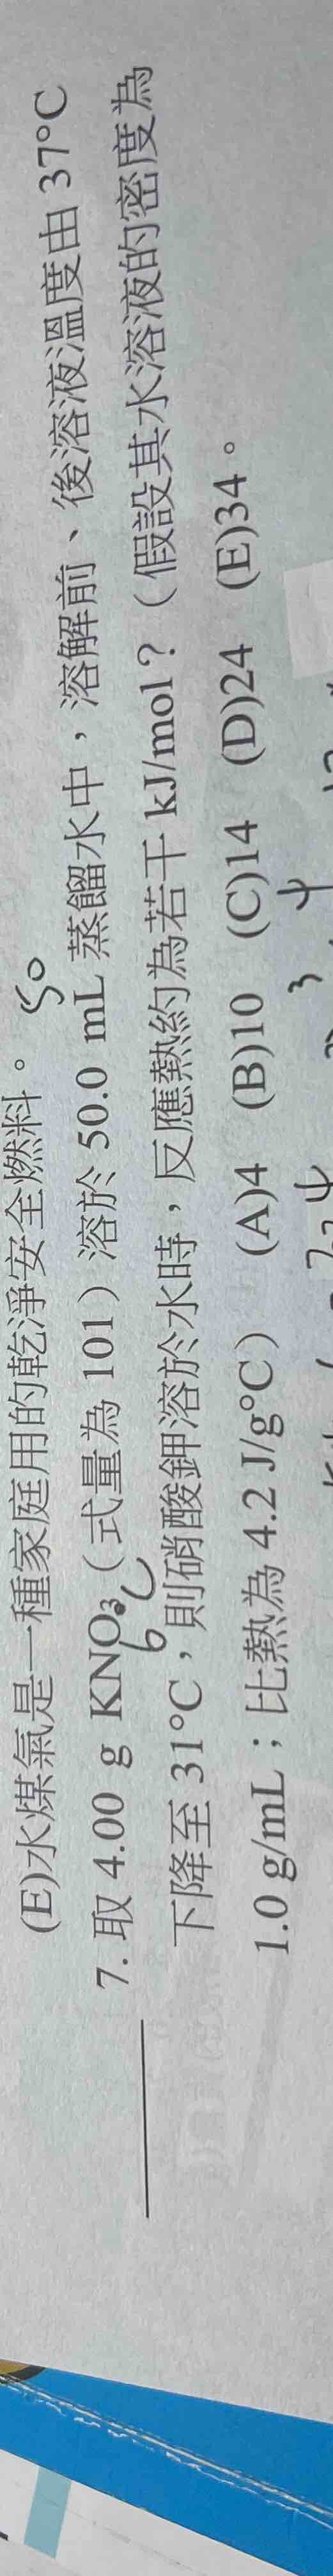 (E)水煤氣是一種家庭用的乾淨安全燃料。
50
7. 取 4.00 g KNO₃（式量為 101）溶於 50.0 mL 蒸餾水中，溶解前、後溶液溫度由 37°C
下降至 31°C，則硝酸鉀溶於水時，反應熱約為若干 kJ/mol？（假設其水溶液的密度為
1.0 g/mL；比熱為 4.2 J/g°C） (A)4 (B)10 (C)14 (D)24 (E)34。